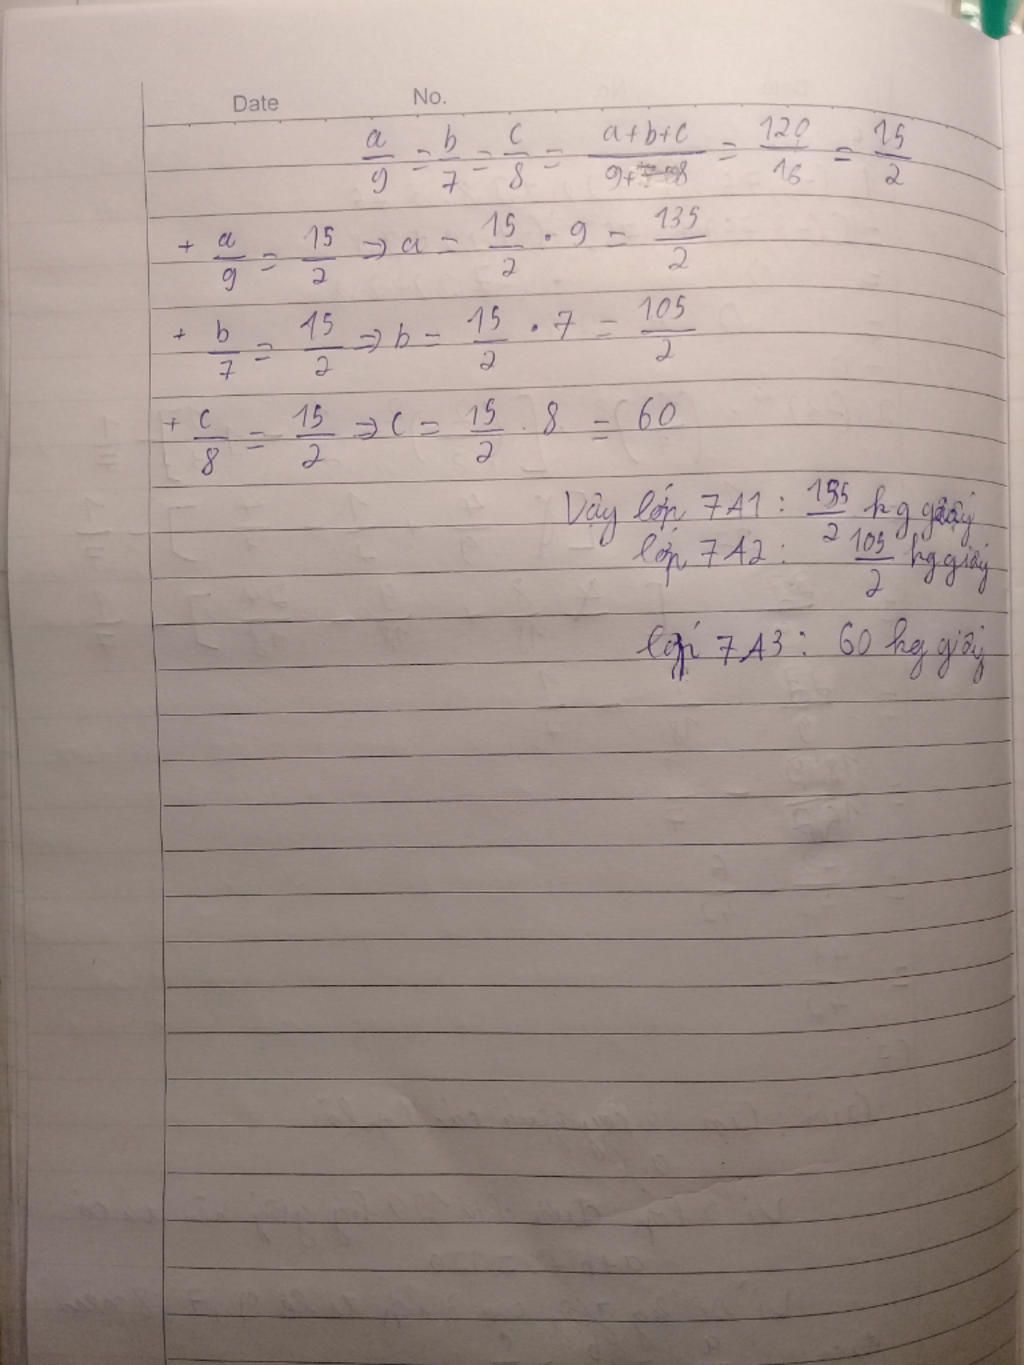 Date No.
a/9 = b/7 = c/8 = (a+b+c)/(9+ 8) = 120/16 = 15/2
+ a/9 = 15/2 => a = 15/2 . 9 = 135/2
+ b/7 = 15/2 => b = 15/2 . 7 = 105/2
+ c/8 = 15/2 => c = 15/2 . 8 = 60
Vậy lớp 7A1 : 135/2 kg giấy
lớp 7A2 : 105/2 kg giấy
lớp 7A3 : 60 kg giấy